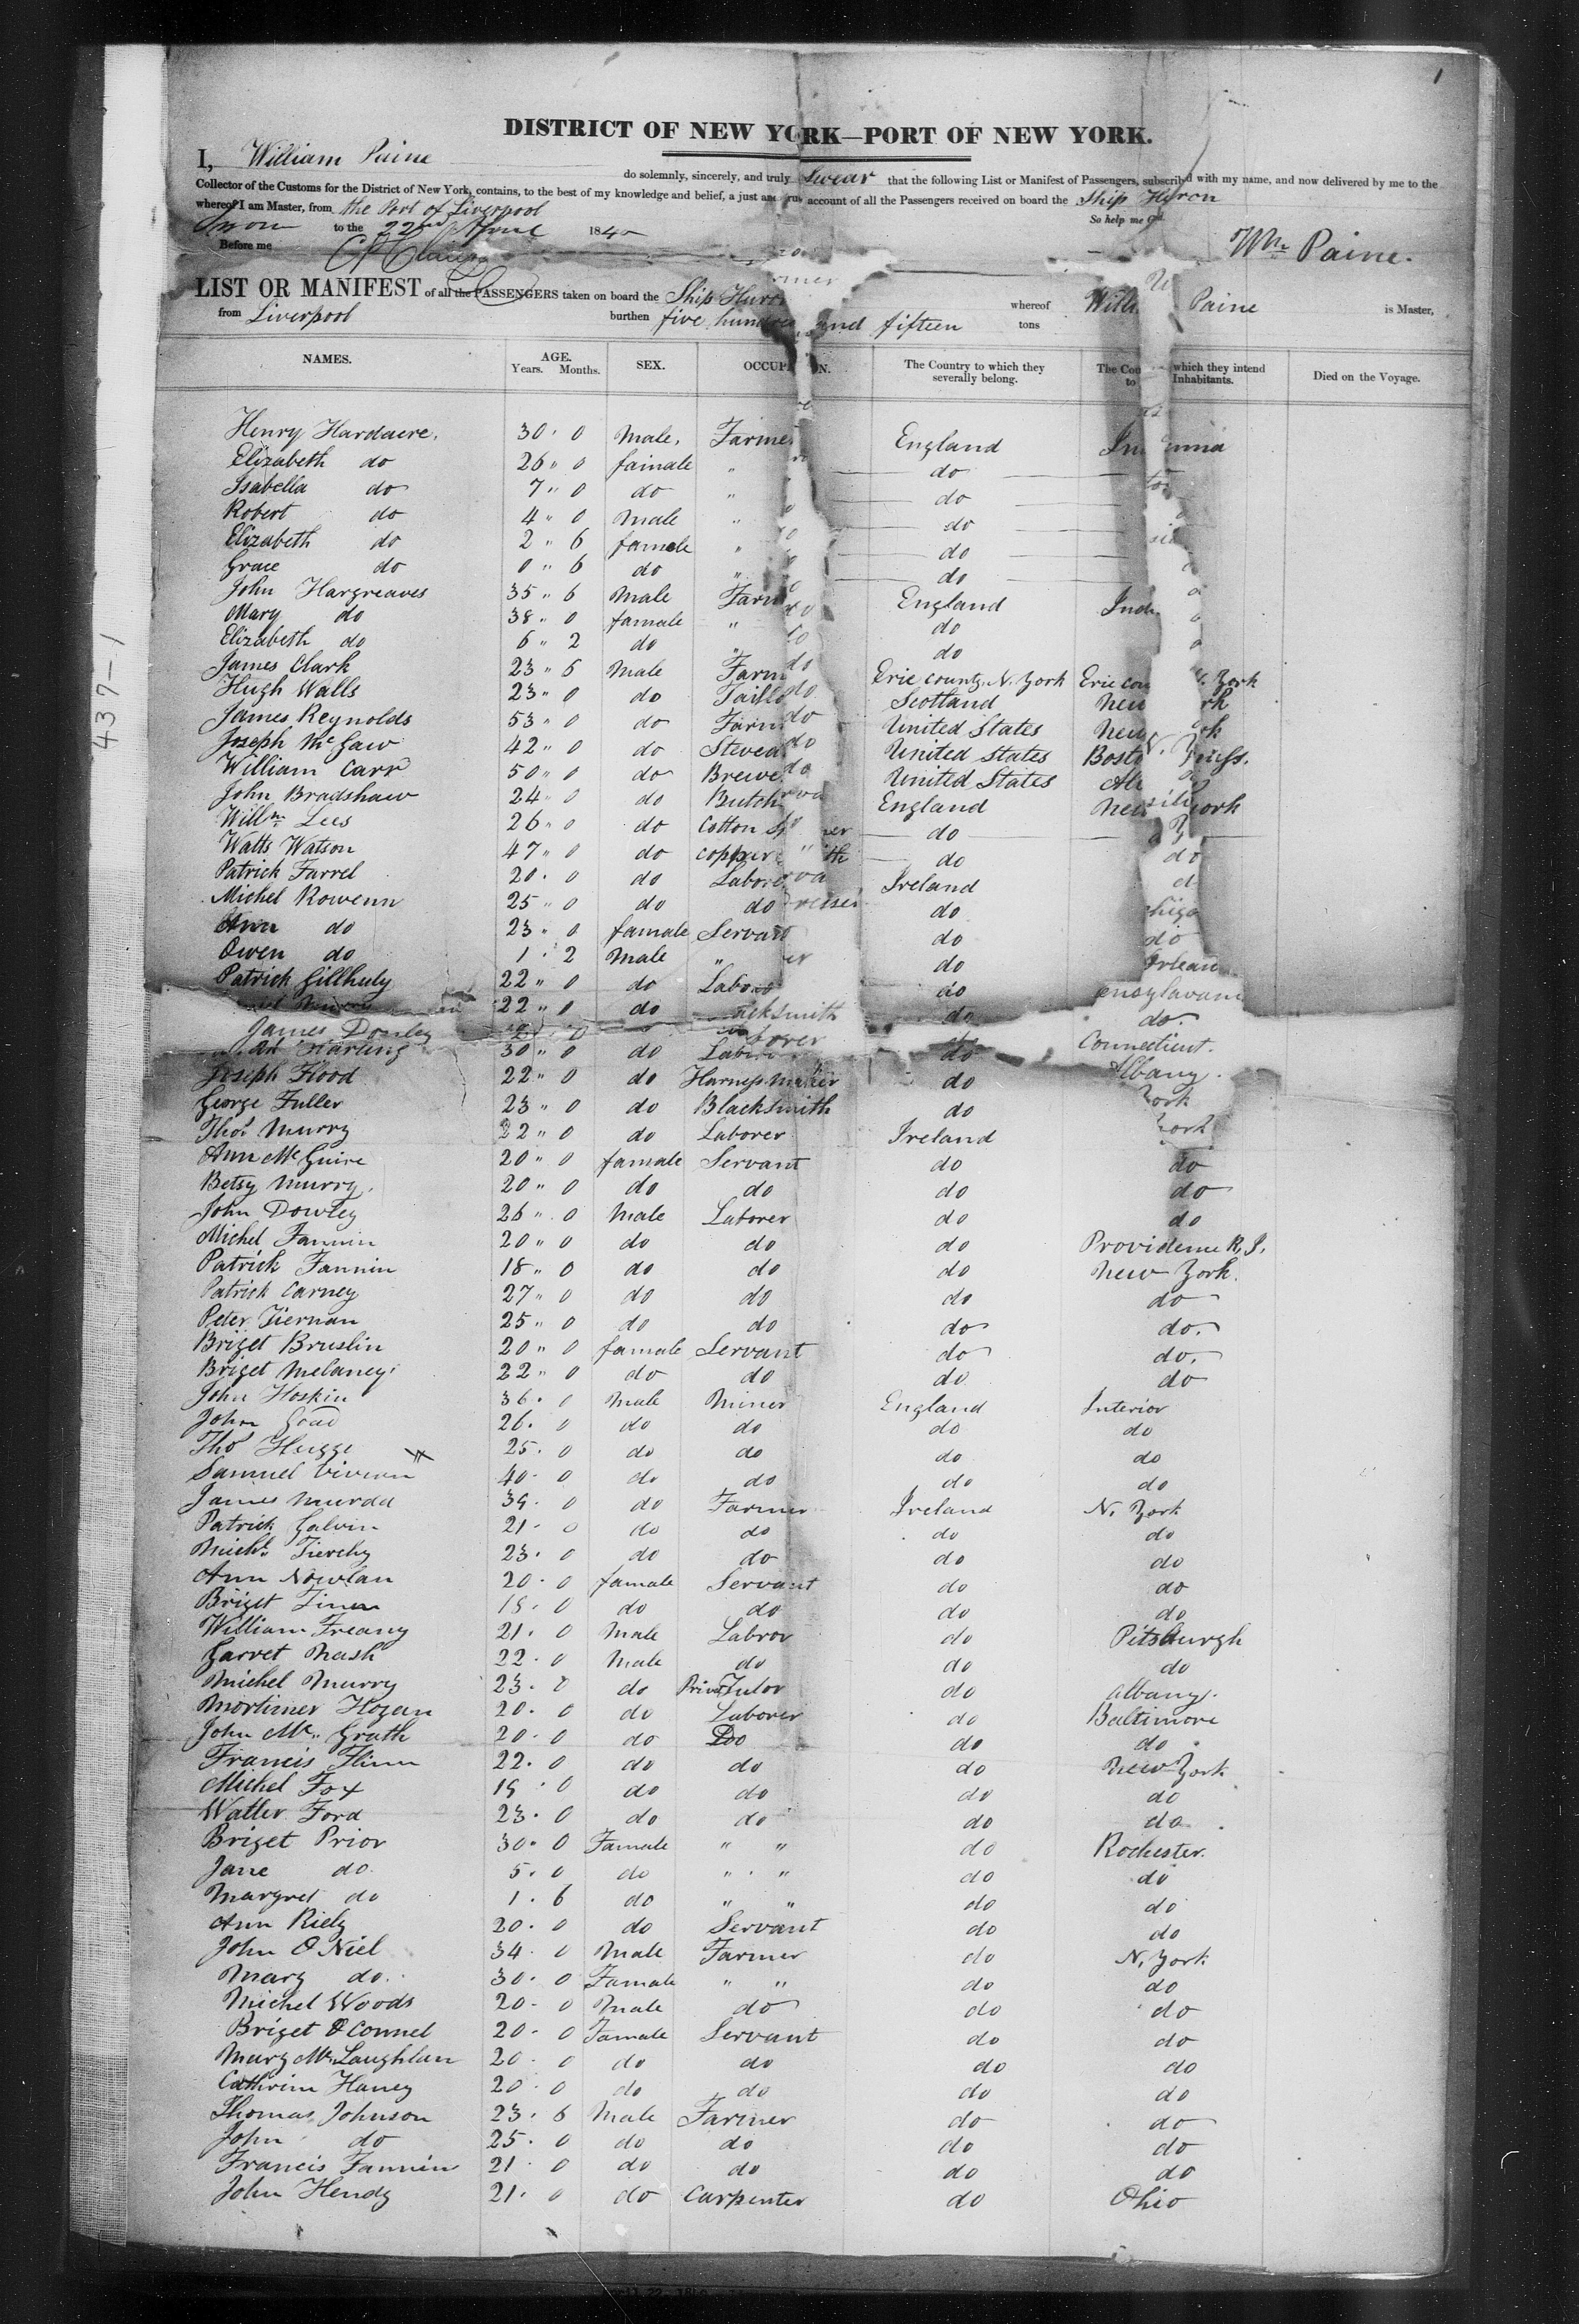 1
DISTRICT OF NEW YORK—PORT OF NEW YORK.
I, William Paine do solemnly, sincerely, and truly Swear that the following List or Manifest of Passengers, subscribed with my name, and now delivered by me to the
Collector of the Customs for the District of New York, contains, to the best of my knowledge and belief, a just and true account of all the Passengers received on board the Ship Huron
whereof I am Master, from the Port of Liverpool
So help me God.
to the 22nd 184
Before me
Wm Paine.
LIST OR MANIFEST of all the PASSENGERS taken on board the Ship Huron whereof Will Paine is Master,
from Liverpool burthen five hundred and fifteen tons
NAMES. AGE. Years. Months. SEX. OCCUPATION. The Country to which they severally belong. The Country to which they intend Inhabitants. Died on the Voyage.
Henry Hardacre. 30 . 0 Male. Farmer England
Elizabeth do 26 " 0 famale " do
Isabella do 7 " 0 do " do
Robert do 4 " 0 Male " do
Elizabeth do 2 " 6 famele " do
Grace do 0 " 6 do " do
John Hargreaves 35 " 6 Male Farm England Ind
Mary do 38 " 0 famale " do
Elizabeth do 6 " 2 do " do
James Clark 23 " 5 Male Farm Erie county N. York Erie cou York
Hugh Walls 23 " 0 do Scotland New rk
James Reynolds 53 " 0 do Farm United States New
Joseph McGaw 42 " 0 do Steved United States Bost
William Carr 50 " 0 do Brewe United States
John Bradshaw 24 " 0 do Butch England New York
Willm Lees 26 " 0 do Cotton do
Watts Watson 47 " 0 do do
Patrick Farrel 20 . 0 do Labore Ireland
Michel Rowenn 25 " 0 do do do
Ann do 23 " 0 famale Servant do
Owen do 1 . 2 Male " do
Patrick Gillhuly 22 " 0 do Labor do
22 " 0 do cksmith do do.
James Dowley orer Connecticut.
Harting 30 " 0 do Labor do Albany.
Joseph Flood 22 " 0 do Harness maker do
George Fuller 23 " 0 do Blacksmith do York
Thos Murry 22 " 0 do Laborer Ireland York
Ann McGuire 20 " 0 famale Servant do do
Betsy Murry. 20 " 0 do do do do
John Dowley 26 " 0 Male Laborer do do
Michel Fannin 20 " 0 do do do Providence R, I.
Patrick Fannin 18 " 0 do do do New York.
Patrick Carney 27 " 0 do do do do
Peter Tiernan 25 " 0 do do do do.
Briget Bruslin 20 " 0 famale Servant do do.
Briget Melaney 22 " 0 do do do do
John Hoskin 36 . 0 Male Miner England Interior
John Goad 26. 0 do do do do
Thos Hugge 25. 0 do do do do
Samuel Vivian 40 . 0 do do do do
James Murdd 39. 0 do Farmer Ireland N. York
Patrick Galvin 21 . 0 do do do do
Michl Tierchy 23 . 0 do do do do
Ann Nowlan 20 . 0 famale Servant do do
Briget 19 . 0 do do do do
William Freany 21. 0 Male Labror do Pitsburgh
Garret Nash 22 . 0 Male do do do
Michel Murry 23 . 0 do Priva Tutor do Albany.
Mortimer Hogan 20 . 0 do Laborer do Baltimore
John Mc Grath 20 . 0 do Do do do
Francis Flinn 22. 0 do do do New York
Michel Fox 19 . 0 do do do do
Walter Ford 23 . 0 do do do do
Briget Prior 30 . 0 Famale " " do Rochester.
Jane do 5 . 0 do " " do do
Margret do 1 . 6 do " " do do
Ann Riely 20 . 0 do Servant do do
John O Niel 34 . 0 Male Farmer do N. York
Mary do. 30 . 0 Famale " " do do
Michel Woods 20 . 0 Male do do do
Briget O Connel 20 . 0 Famale Servant do do
Mary McLaughlan 20 . 0 do do do do
Cathrine Haney 20 . 0 do do do do
Thomas Johnson 23 . 6 Male Farmer do do
John do 25 . 0 do do do do
Francis Fannin 21 . 0 do do do do
John Hendy 21 . 0 do Carpenter do Ohio
437-1